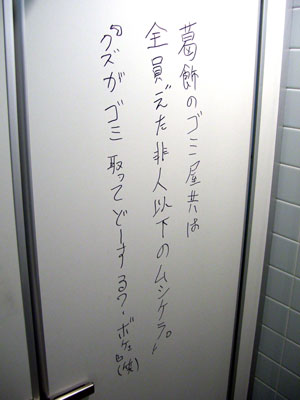 葛飾のゴミ屋共は
全員“えた非人以下のムシケラ”、
“クズがゴミ取ってどーする?・ボケェ”(笑)